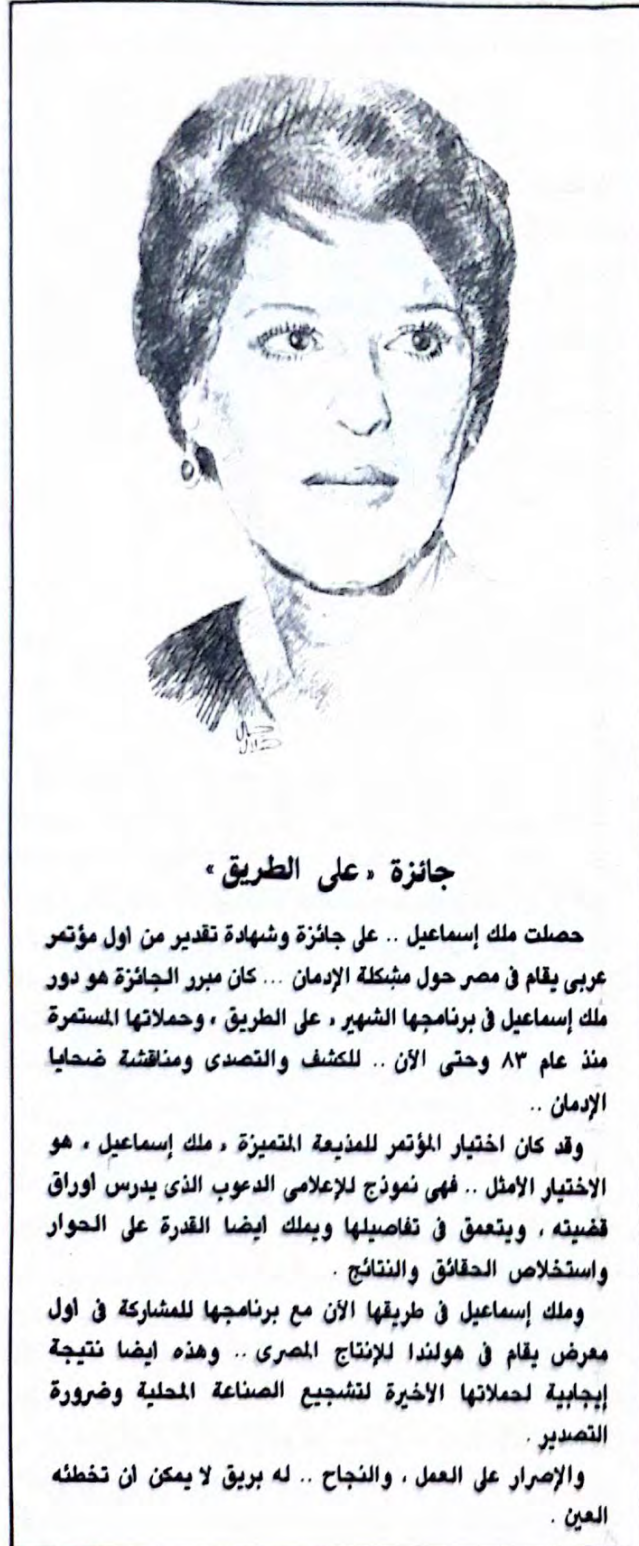 جائزة « على الطريق »
حصلت ملك إسماعيل .. على جائزة وشهادة تقدير من اول مؤتمر
عربى يقام فى مصر حول مشكلة الإدمان ... كان مبرر الجائزة هو دور
ملك إسماعيل فى برنامجها الشهير « على الطريق » وحملاتها المستمرة
منذ عام ٨٣ وحتى الآن .. للكشف والتصدى ومناقشة ضحايا
الإدمان ..
وقد كان اختيار المؤتمر للمذيعة المتميزة « ملك إسماعيل » هو
الاختيار الأمثل .. فهى نموذج للإعلامى الدعوب الذى يدرس اوراق
قضيته ، ويتعمق فى تفاصيلها ويملك ايضا القدرة على الحوار
واستخلاص الحقائق والنتائج .
وملك إسماعيل فى طريقها الآن مع برنامجها للمشاركة فى اول
معرض يقام فى هولندا للإنتاج المصرى .. وهذه ايضا نتيجة
إيجابية لحملاتها الأخيرة لتشجيع الصناعة المحلية وضرورة
التصدير .
والإصرار على العمل ، والنجاح .. له بريق لا يمكن ان تخطئه
العين .